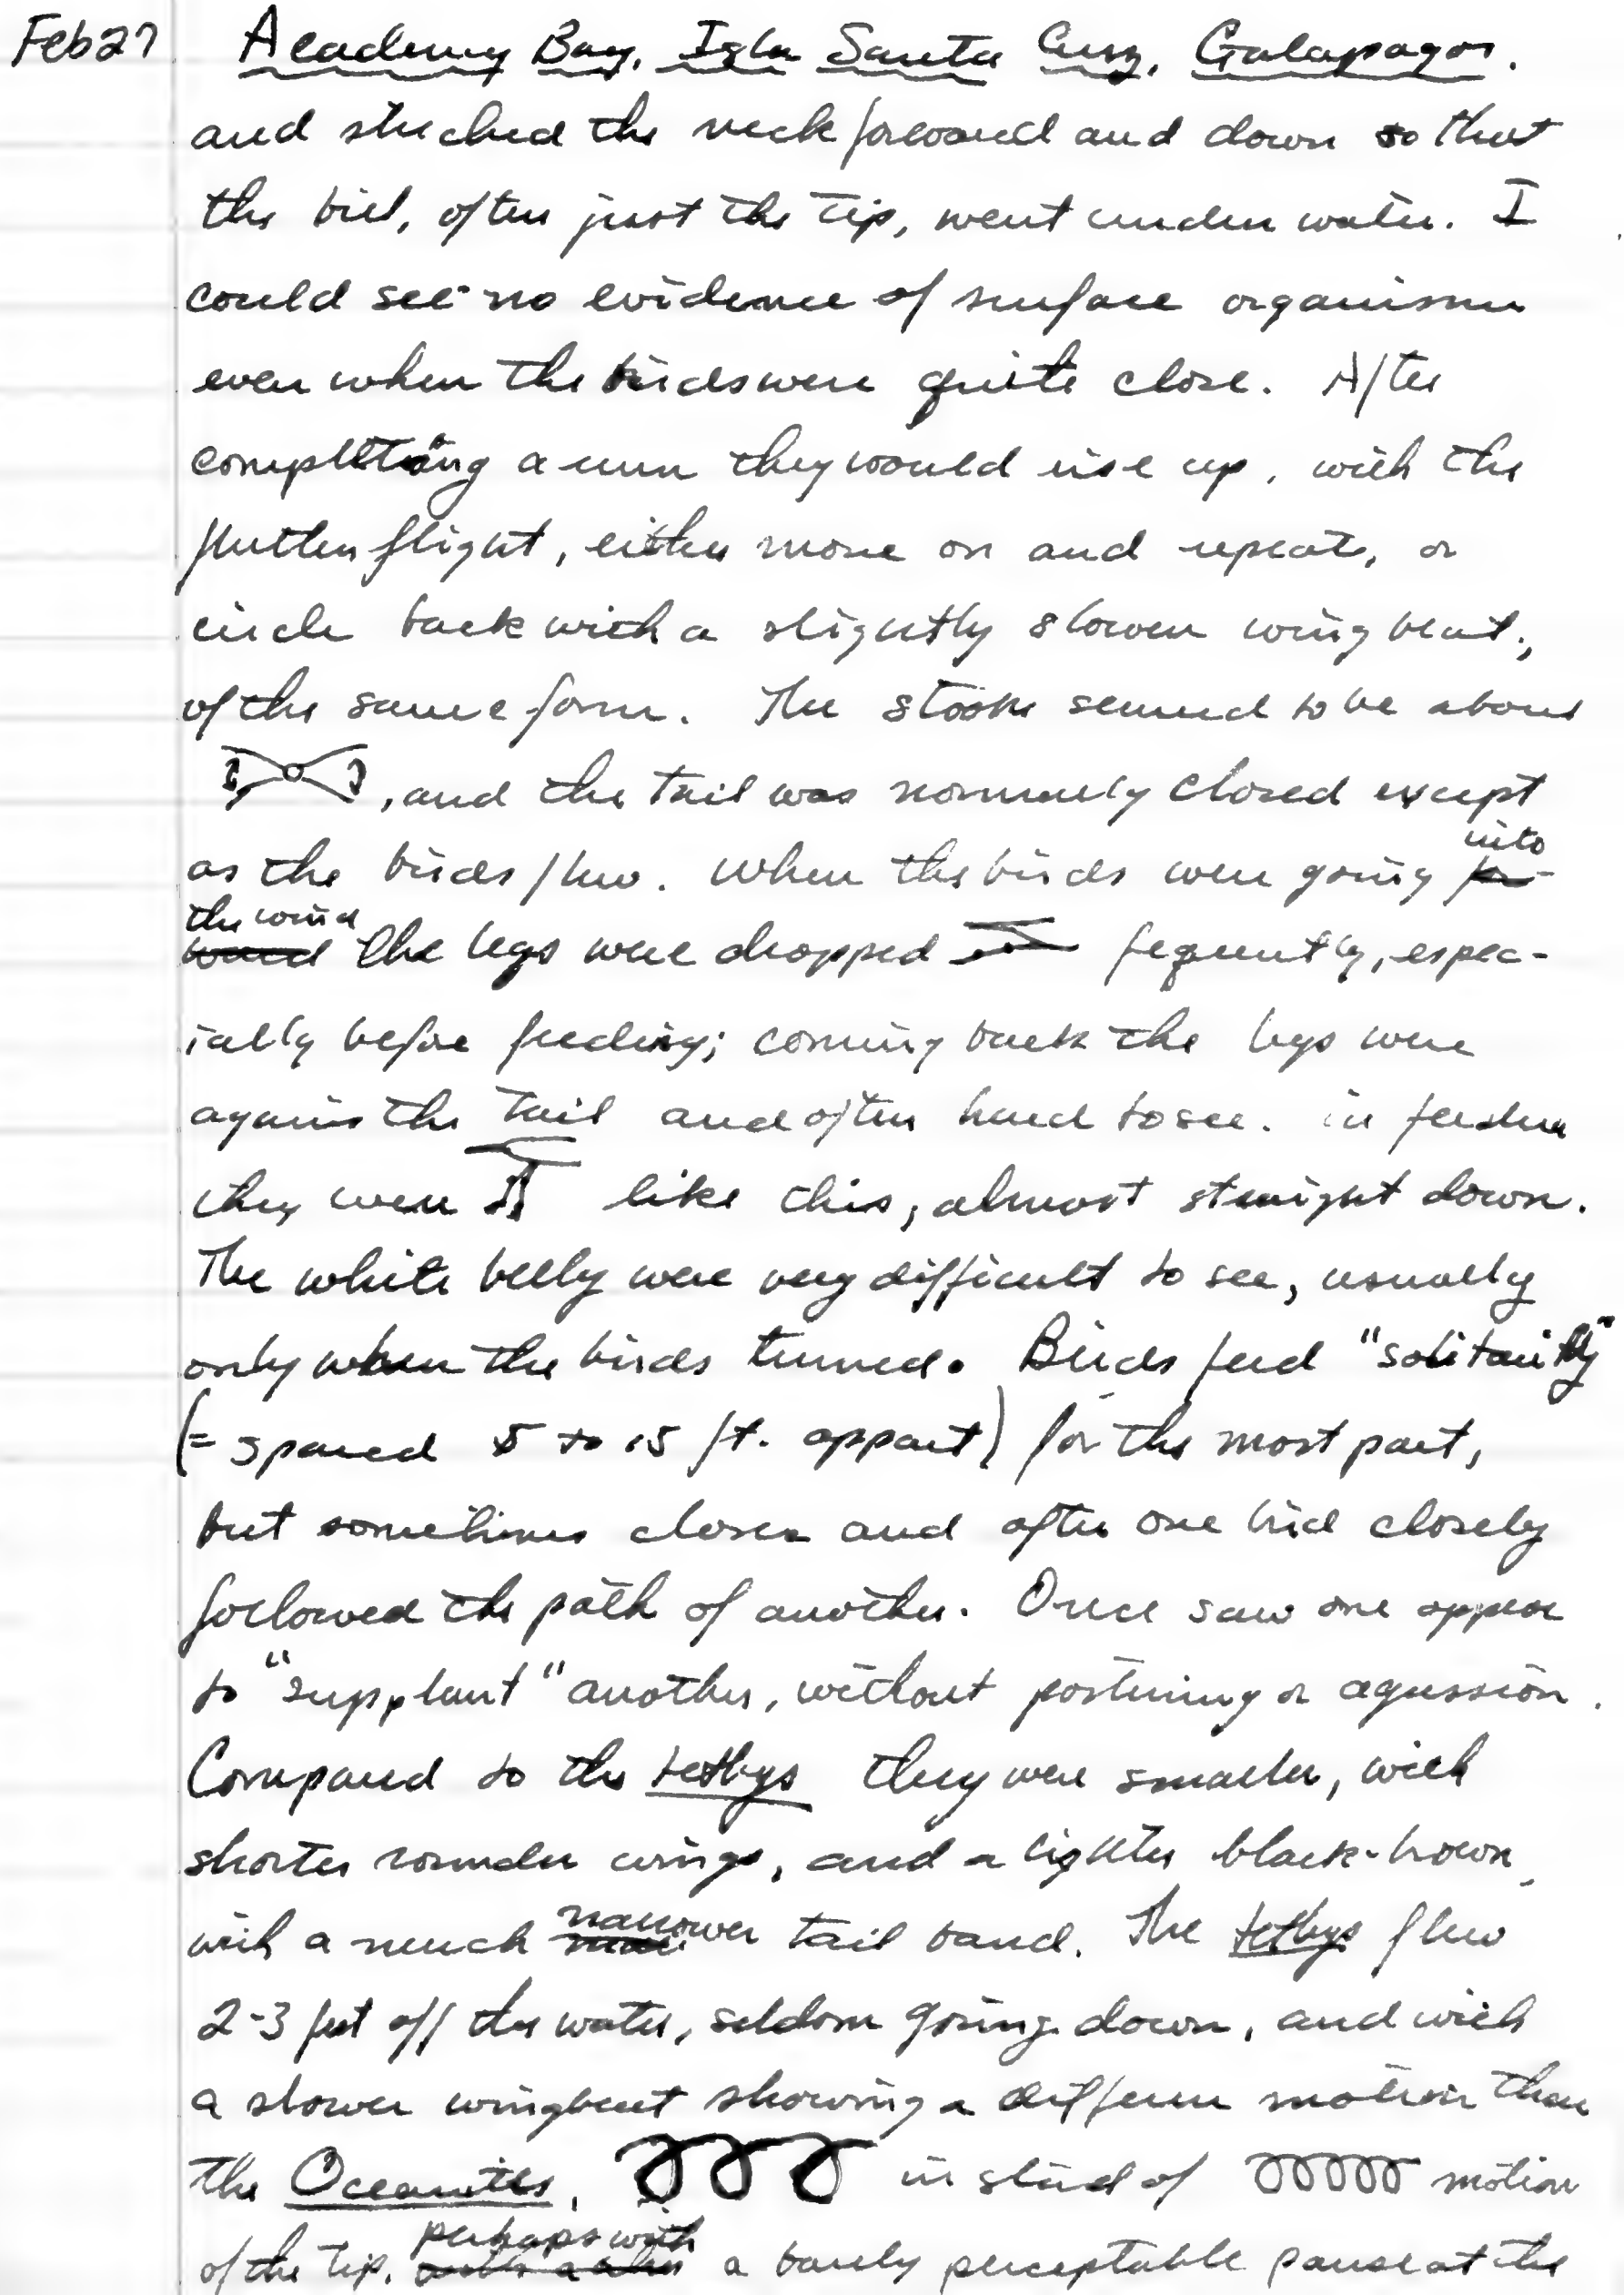 Feb 27 Academy Bay, Isla Santa Cruz, Galapagos.
and stretched the neck forward and down so that
the bill, often just the tip, went under water. I
could see no evidence of surface organisms
even when the birds were quite close. After
completing a run they would rise up, with the
flutter flight, either move on and repeat, or
circle back with a slightly slower wing beat,
of the same form. The stroke seemed to be about
, and the tail was normally closed except
as the birds flew. When the birds were going into
the wind the legs were dropped frequently, espec-
ially before feeding; coming back the legs were
against the tail and often hard to see. in feeding
they were like this, almost straight down.
The white belly were very difficult to see, usually
only when the birds turned. Birds feed "solitarily"
(= spaced 5 to 15 ft. appart) for the most part,
but sometimes closer and often one bird closely
followed the path of another. Once saw one appear
to "supplant" another, without posturing or agression.
Compared to the tethys they were smaller, with
shorter rounder wings, and a lighter black-brown,
with a much narrower tail band. The tethys flew
2-3 feet off the water, seldom going down, and with
a slower wingbeat showing a different motion than
the Oceanites, instead of motion
of the tip, perhaps with a barely perceptable pause at the